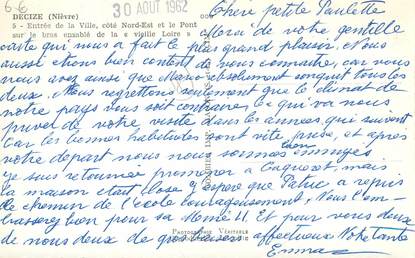 66
30 AOUT 1962
DECIZE (Nièvre)
5 - Entrée de la Ville, côté Nord-Est et le Pont
sur le bras ensablé de la « vieille Loire »
Chère petite Paulette
Merci de votre gentille
carte qui nous a fait le plus grand plaisir. Nous
aussi étions bien content de vous connaitre, car nous
vous avez ainsi que Mario absolument conquit tous les
deux. Nous regrettons seulement que le climat de
notre pays vous soit contraire, ce qui va nous
priver de votre visite dans les années qui suivent
car les bonnes habitudes sont vite prise, et après
votre départ nous nous sommes bien ennuyés
je suis retourner promener à mais
la maison était close. J'espère que a repris
le chemin de l'école courageusement, Vous l'em-
brasserez bien pour sa Mémé H. Et pour vous deux
de nous deux de gros baisers affectueux Votre tante
Emma
Photographie Véritable